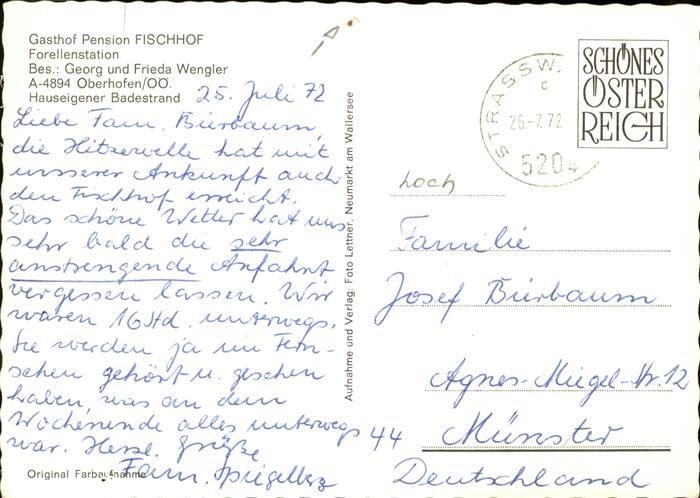 Gasthof Pension FISCHHOF
Forellenstation
Bes.: Georg und Frieda Wengler
A-4894 Oberhofen/OÖ.
Hauseigener Badestrand
25. Juli 72
Liebe Fam. Bierbaum,
die Hitzewelle hat mit
unserer Ankunft auch
den Fischhof erreicht.
Das schöne Wetter hat uns
sehr bald die sehr
anstrengende Anfahrt
vergessen lassen. Wir
waren 16 Std. unterwegs.
Sie werden ja im Fern-
sehen gehört u. gesehen
haben, was an dem
Wochenende alles unterwegs
war. Herzl. Grüße
Fam. Spiegelberg
Original Farbaufnahme
Aufnahme und Verlag: Foto Lettner, Neumarkt am Wallersee
STRASSW.
c
26.-7.72
5204
SCHÖNES
ÖSTER
REICH
hoch
Familie
Josef Bierbaum
Agnes-Miegel-Str. 12
44 Münster
Deutschland